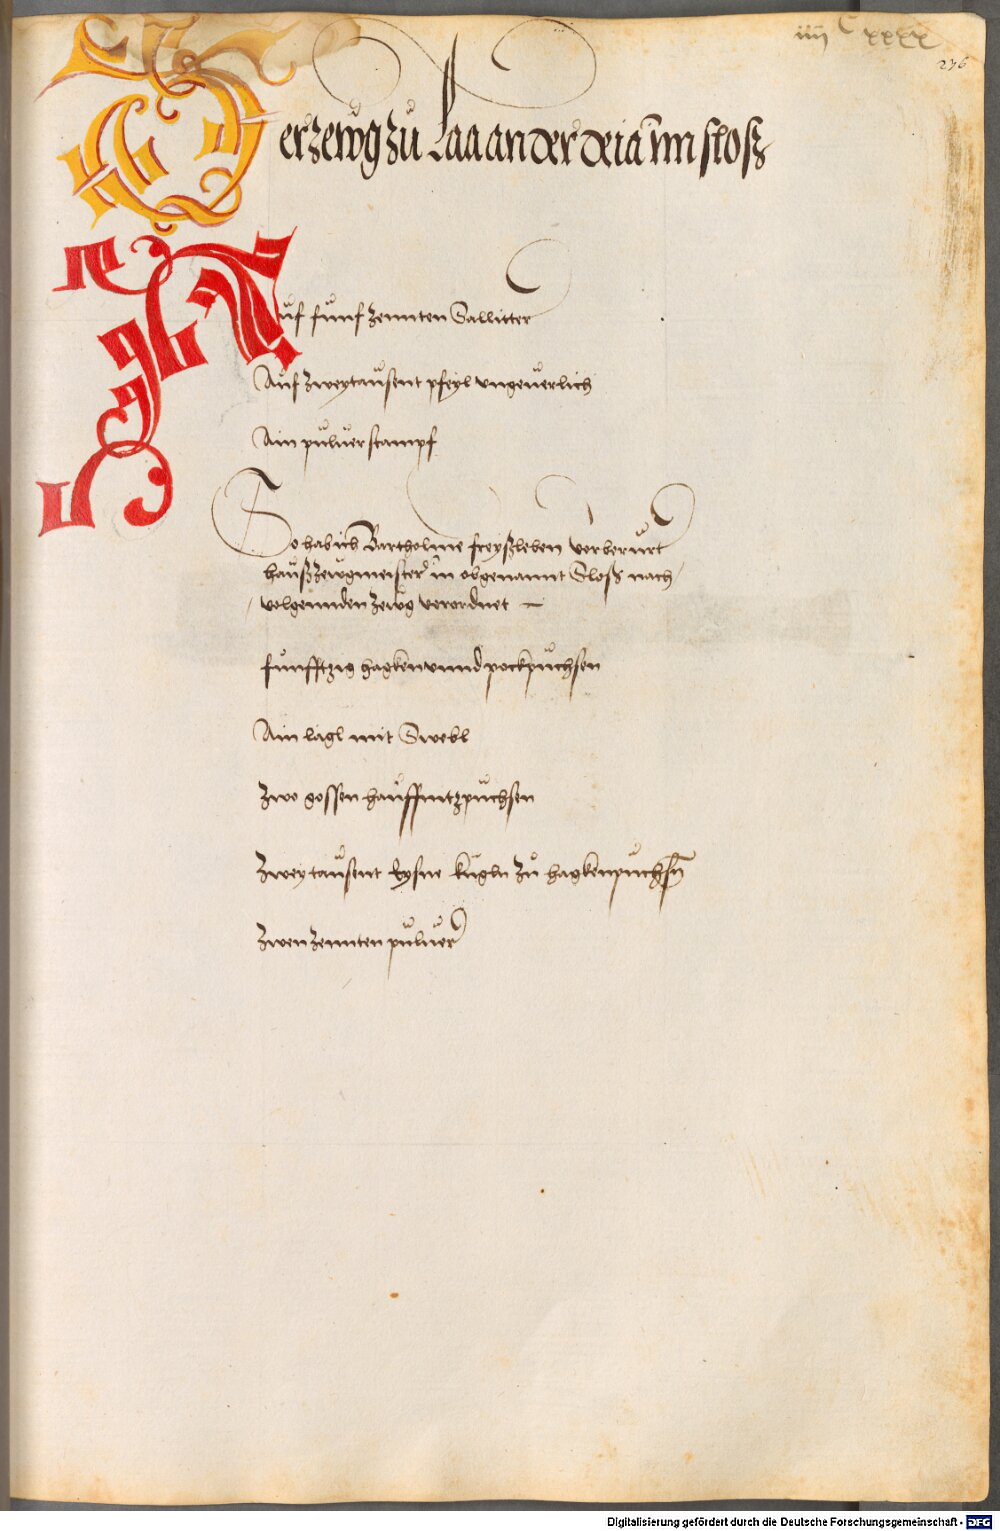 iiij C xxxx
276
Der zeẃg zů Laa an der deia im̄ sloss
Auf funf zennten Sallitter
Auf zwaytausent pfeyl vngeuerlich
Ain pulver stampf
So hab ich Bartholme freyssleben vorberürt
hausszewgmeister in obgenannt Sloss nach
volgennden zewg verordnet —
funfftzig hagken vnnd pockpuchsen
Ain lagl mit Swebl
Zwo gossen hauffnitzpuchsen
Zwaytausent Eysne kugln zu hagkenpuchsn̄
Zwen zennten puluer
Digitalisierung gefördert durch die Deutsche Forschungsgemeinschaft - DFG